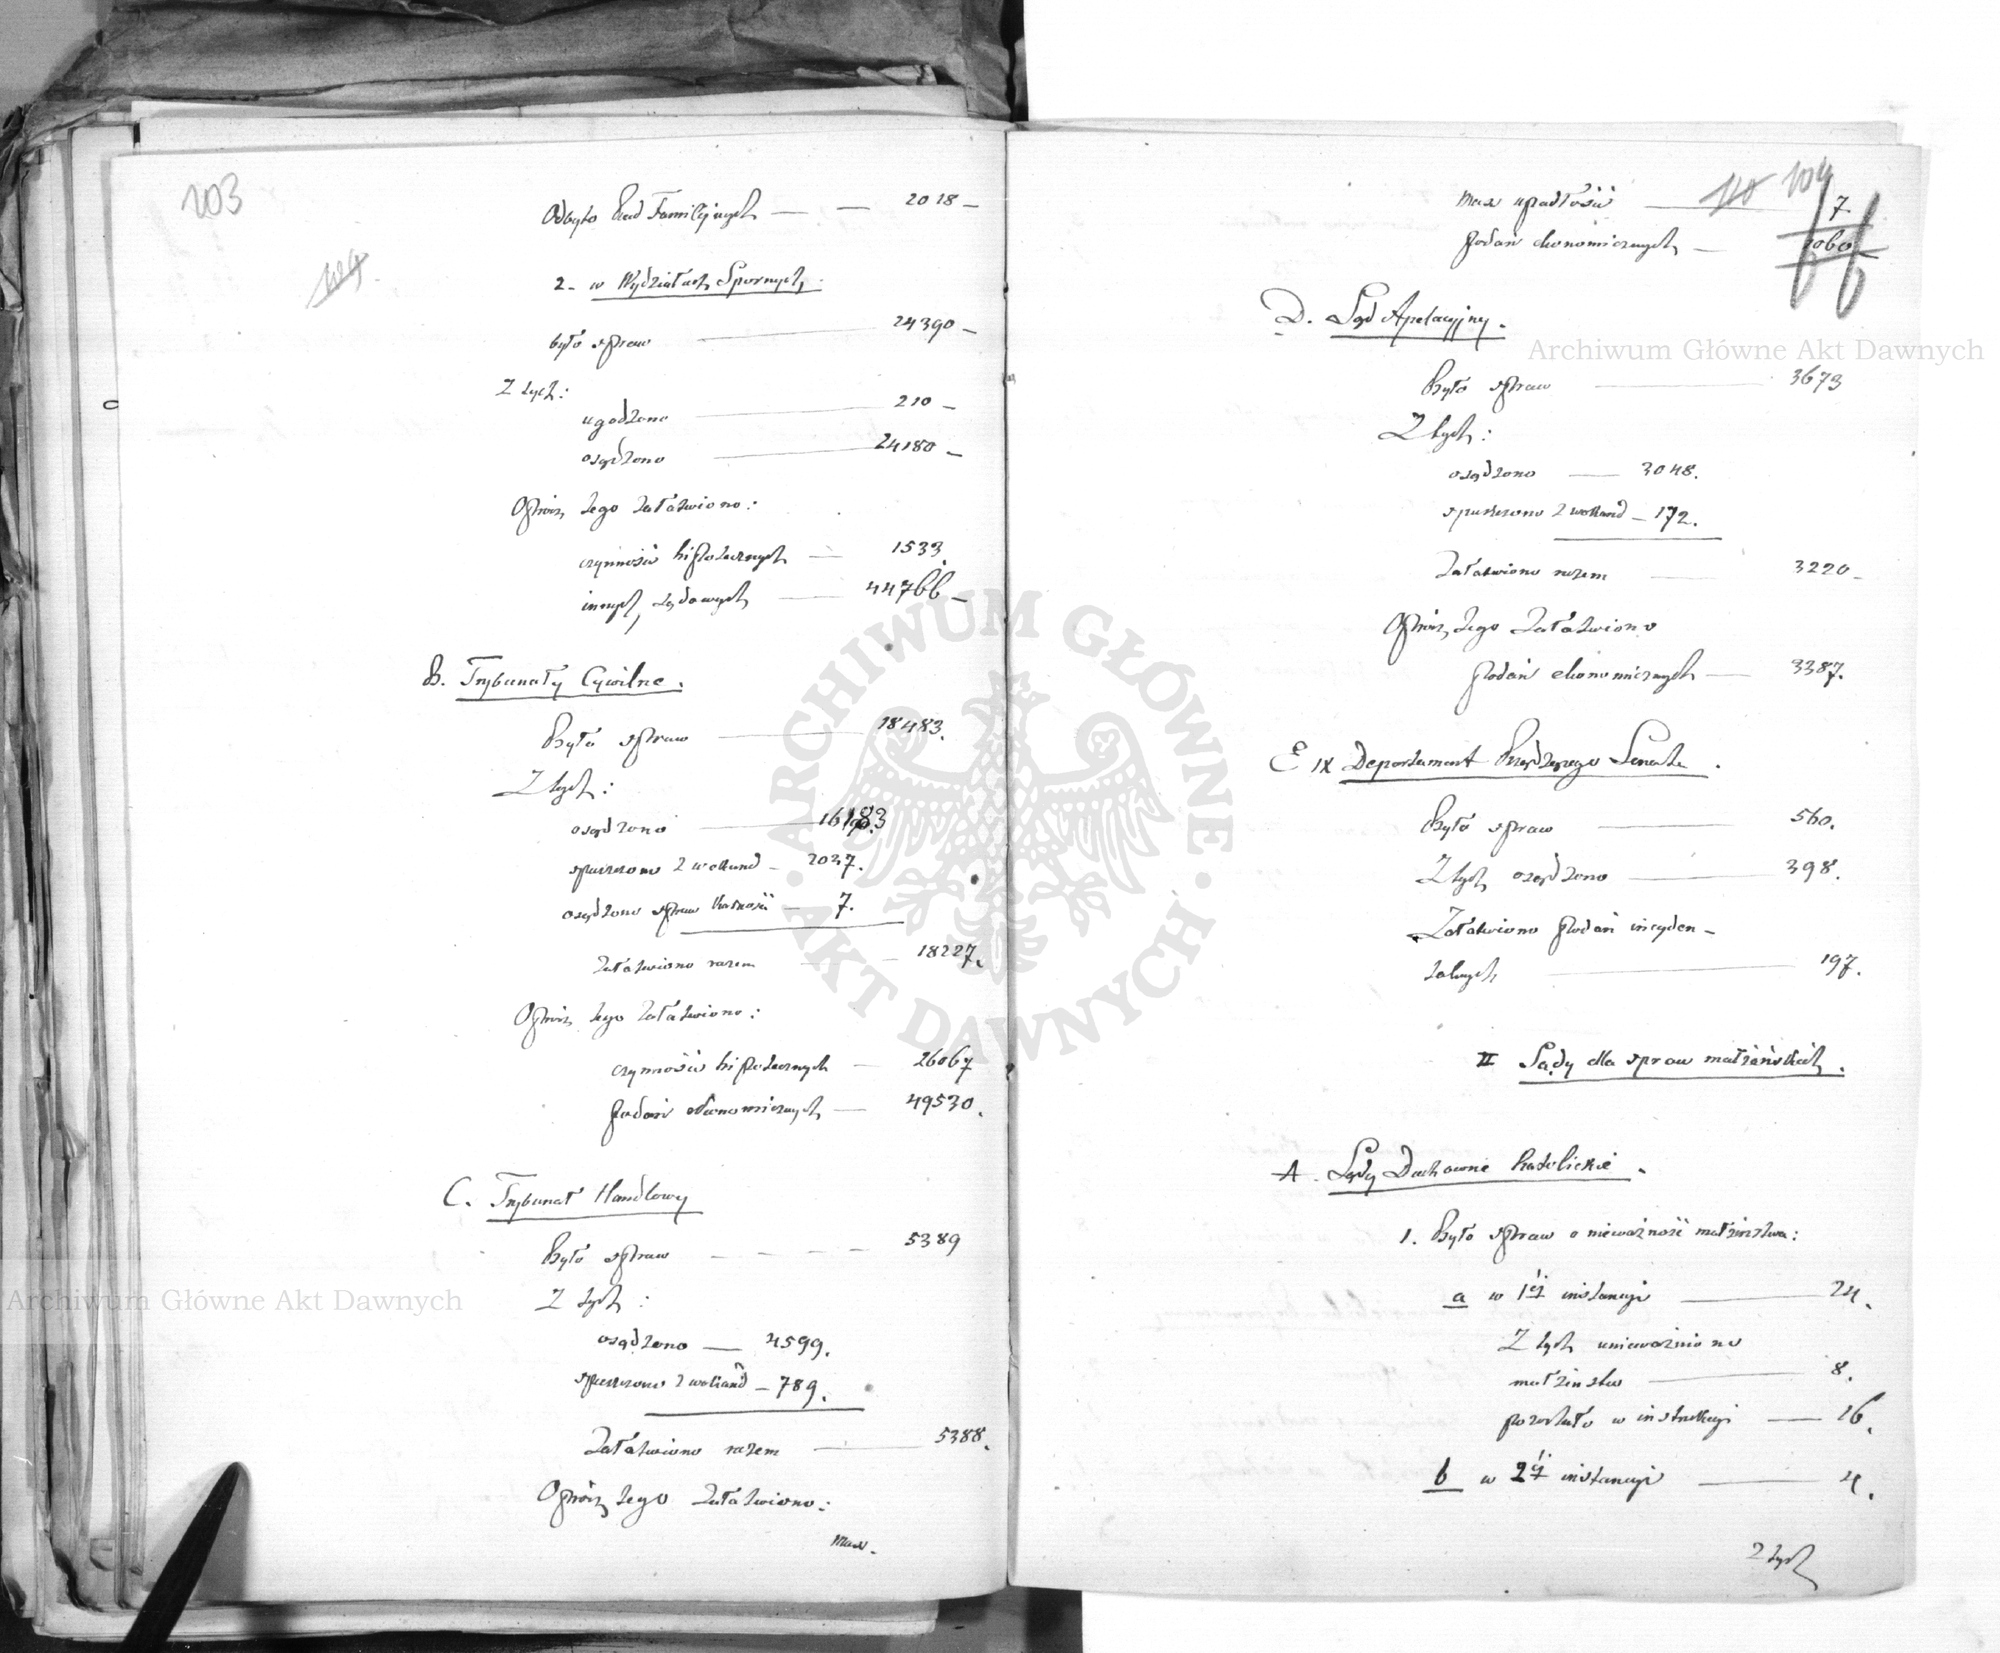 103
109
Odbyto Rad Familijnych — — 2018 —
2. w Wydziałach Spornych.
było spraw — 24390 —
Z tych:
ugodzono — 210 —
osądzono — 24180 —
Oprócz tego załatwiono:
czynności hipotecznych — 1533.
innych sądowych — 44766 —
B. Trybunały Cywilne.
Było spraw — 18483.
Z tych:
osądzono — 16183
spuszczono z wokand — 2037.
osądzono spraw — 7.
Załatwiono razem — 18227.
Oprócz tego załatwiono:
czynności hipotecznych — 26067
podań ekonomicznych — 49530.
C. Trybunał Handlowy
Było spraw — — — — 5389
Z tych:
osądzono — 4599.
spuszczono z wokand — 789.
Załatwiono razem — 5388.
Oprócz tego załatwiono:
Mass.
110 104
Mass upadłości — 7
podań ekonomicznych — 2060
D. Sąd Apelacyjny.
Było spraw — 3673
Z tych:
osądzono — 3048.
spuszczono z wokand — 172.
Załatwiono razem — 3220 —
Oprócz tego załatwiono
podań ekonomicznych — 3387.
E IX Departament Rządzącego Senatu.
Było spraw — 560.
Z tych osądzono — 398.
Załatwiono podań incyden-
talnych — 197.
II Sądy dla spraw małżeńskich.
A. Sądy Duchowne Katolickie.
1. Było spraw o nieważność małżeństwa:
a w 1ej instancyi — 24.
Z tych unieważniono
małżeństw — 8.
pozostało w instrukcyi — 16.
b w 2ej instancyi — 4.
Z tych
Archiwum Główne Akt Dawnych
Archiwum Główne Akt Dawnych
ARCHIWUM GŁÓWNE • AKT DAWNYCH •